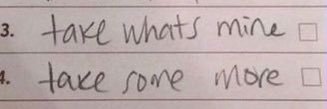 3. take whats mine
4. take some more